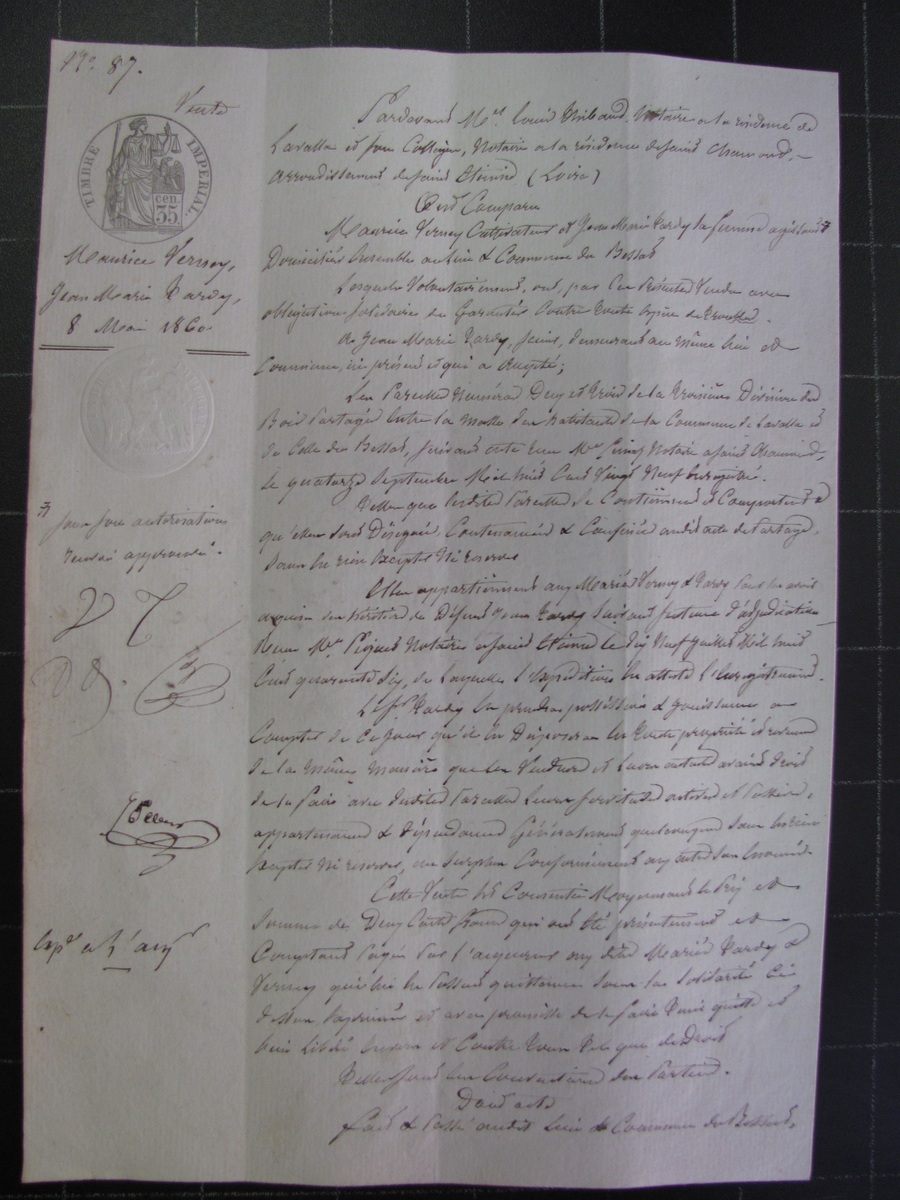 N.° 87.
Vente
TIMBRE IMPERIAL.
35 cen.
Maurice Verney,
Jean Marie Tardy,
8 Mai 1860
Pardevant M.es Louis Thibaud, Notaire à la résidence de
Lavalla et son Collègue, Notaire à la résidence de saint chamond,
arrondissement de saint Etienne (Loire)
Ont Comparu
Maurice Verney Cultivateur et Jeanne Marie Tardy sa femme agissant
Domiciliés Ensemble au lieu & Commune du Bessat
Lesquels Volontairement, ont, par Ces Présentes Vendu avec
obligation solidaire de Garantie Contre toute Espèce de trouble.
A Jean Marie Tardy, demeurant au même lieu et
Commune, ici présent et qui a Accepté;
Les Parcelles Numéros Deux et trois de la troisième Division du
Bois Partagé Entre la Masse des habitants de la Commune de Lavalla et
de Celle du Bessat, suivant acte reçu M.e Notaire à saint Chamond,
le quatorze septembre Mil huit Cent Vingt Neuf Enregistré.
Telles que lesdites Parcelles se Contiennent & Comportent
qu'elles sont Désignées, Contenancées & Confinées audit acte de Partage,
sans en rien Excepter Ni réserver
Elles appartiennent aux Mariés Verney & Tardy
de Défunt Jean Tardy suivant Jugement d'adjudication
reçu M.e Notaire à saint Etienne le Dix Neuf Juillet Mil huit
Cent quarante six, de laquelle l'Expédition En atteste l'Enregistrement.
Le s.r Tardy En prendra possession & Jouissance à
Compter de Ce Jour qu'il En Disposera En toute propriété et revenu
de la Même Manière que les Vendeurs et Leurs auteurs avaient Droit
de le faire avec lesdites Parcelles Leurs servitudes actives et Passives,
appartenances & Dépendances Généralement quelconques sans En rien
Excepter Ni réserver, au surplus Conformément aux actes sus Enoncés
Cette Vente Est Consentie Moyennant le Prix et
somme de Deux Cents francs qui ont été présentement et
Comptant Payés Par l'acquéreur aux dits Mariés Tardy &
Verney qui lui En Passent quittance sous la solidarité Ci
dessus Exprimée et avec promesse de le faire tenir quitte et
bien Libéré Envers et Contre tous tels que de Droit
Telles sont Les Conventions des Parties.
Dont acte
fait & Passé audit Lieu & Commune du Bessat,
son autorisation
renvoi approuvé.
V T
Exp.on à l'acq.r